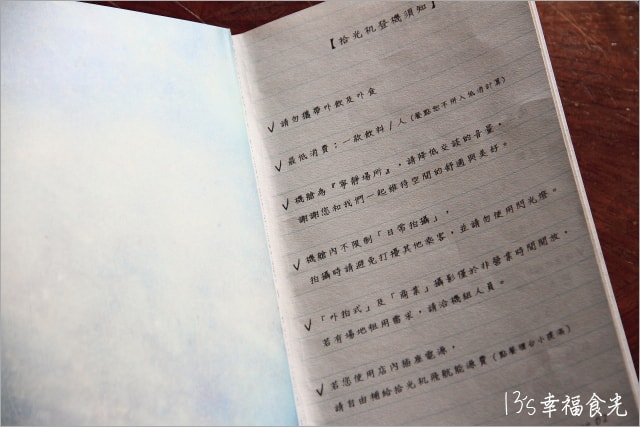 【拾光机登機須知】
✓ 請勿攜帶外飲及外食
✓ 最低消費：一款飲料/人 (餐點恕不併入低消計算)
✓ 機艙為『寧靜場所』，請降低交談的音量，
謝謝您和我們一起維持空間的舒適與美好。
✓ 機艙內不限制「日常拍攝」，
拍攝時請避免打擾其他乘客，並請勿使用閃光燈。
✓ 「外拍式」及「商業」攝影僅於非營業時間開放，
若有場地租用需求，請洽機組人員。
✓ 若您使用店內插座電源，
請自由補給拾光机飛航能源費 (點餐櫃台小撲滿)
13's幸福食光